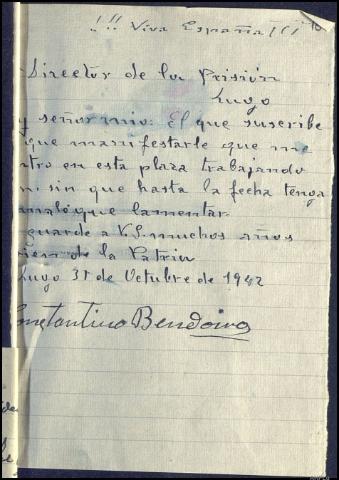 ¡!! Viva España !¡!
Director de la Prisión
Lugo
y señor mio: El que suscribe
que manifestarle que me
ntro en esta plaza trabajando
ni sin que hasta la fecha tenga
que lamentar
guarde a V.S. muchos años
bien de la Patria
Lugo 31 de Octubre de 1942
onstantino Bendoiro